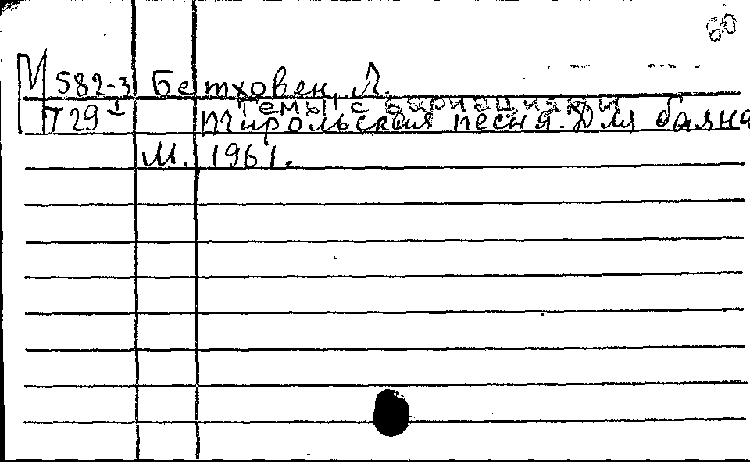 60
М 582-3 Бетховен, Л.
Темы с вариациями
П 29 1 Тирольская песня. Для баяна
М. 1961.